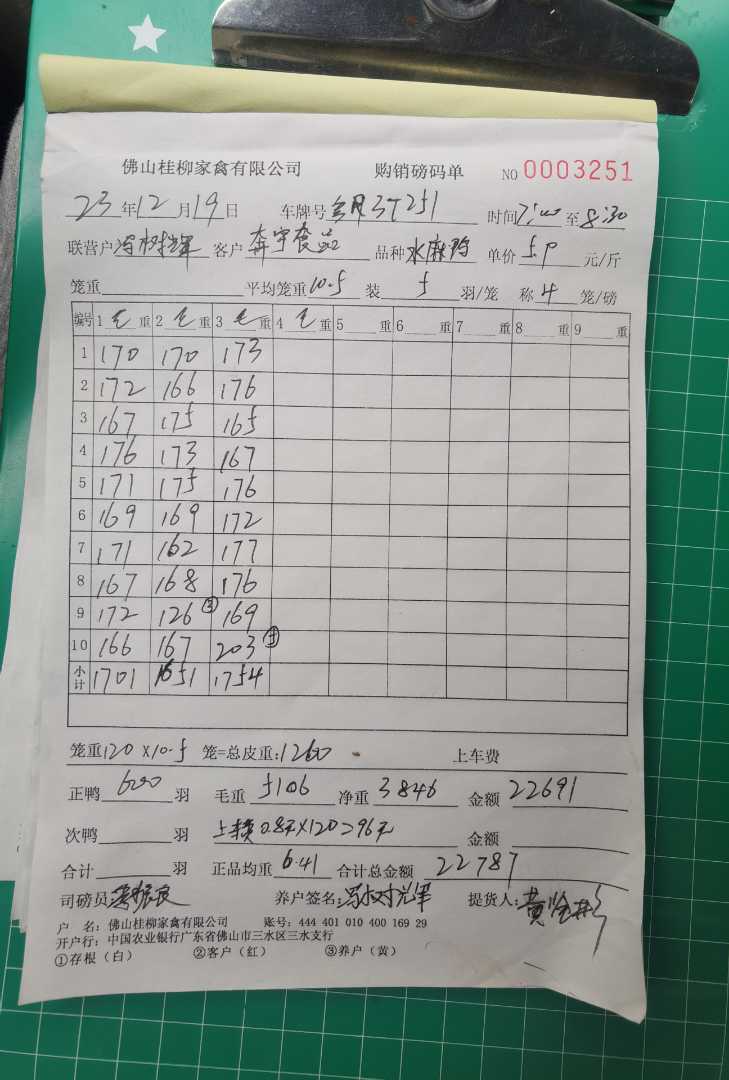 佛山桂柳家禽有限公司 购销磅码单 NO 0003251
23年12月19日 车牌号 37251 时间7:00至8:30
联营户冯树辉 客户奔宇食品 品种水麻鸭 单价5.9元/斤
笼重 平均笼重10.5 装5羽/笼 称4笼/磅
编号 1毛重 2毛重 3毛重 4毛重 5重 6重 7重 8重 9重
1 170 170 173
2 172 166 176
3 167 175 165
4 176 173 167
5 171 175 176
6 169 169 172
7 171 162 177
8 167 168 176
9 172 126③ 169
10 166 167 203⑤
小计 1701 1651 1754
笼重120×10.5笼=总皮重:1260 上车费
正鸭600羽 毛重5106 净重3846 金额22691
次鸭羽 上 0.8元×120=96元 金额
合计羽 正品均重6.41 合计总金额22787
司磅员: 养户签名:冯树辉 提货人:黄
户 名:佛山桂柳家禽有限公司 账号:444 401 010 400 169 29
开户行:中国农业银行广东省佛山市三水区三水支行
①存根(白) ②客户(红) ③养户(黄)